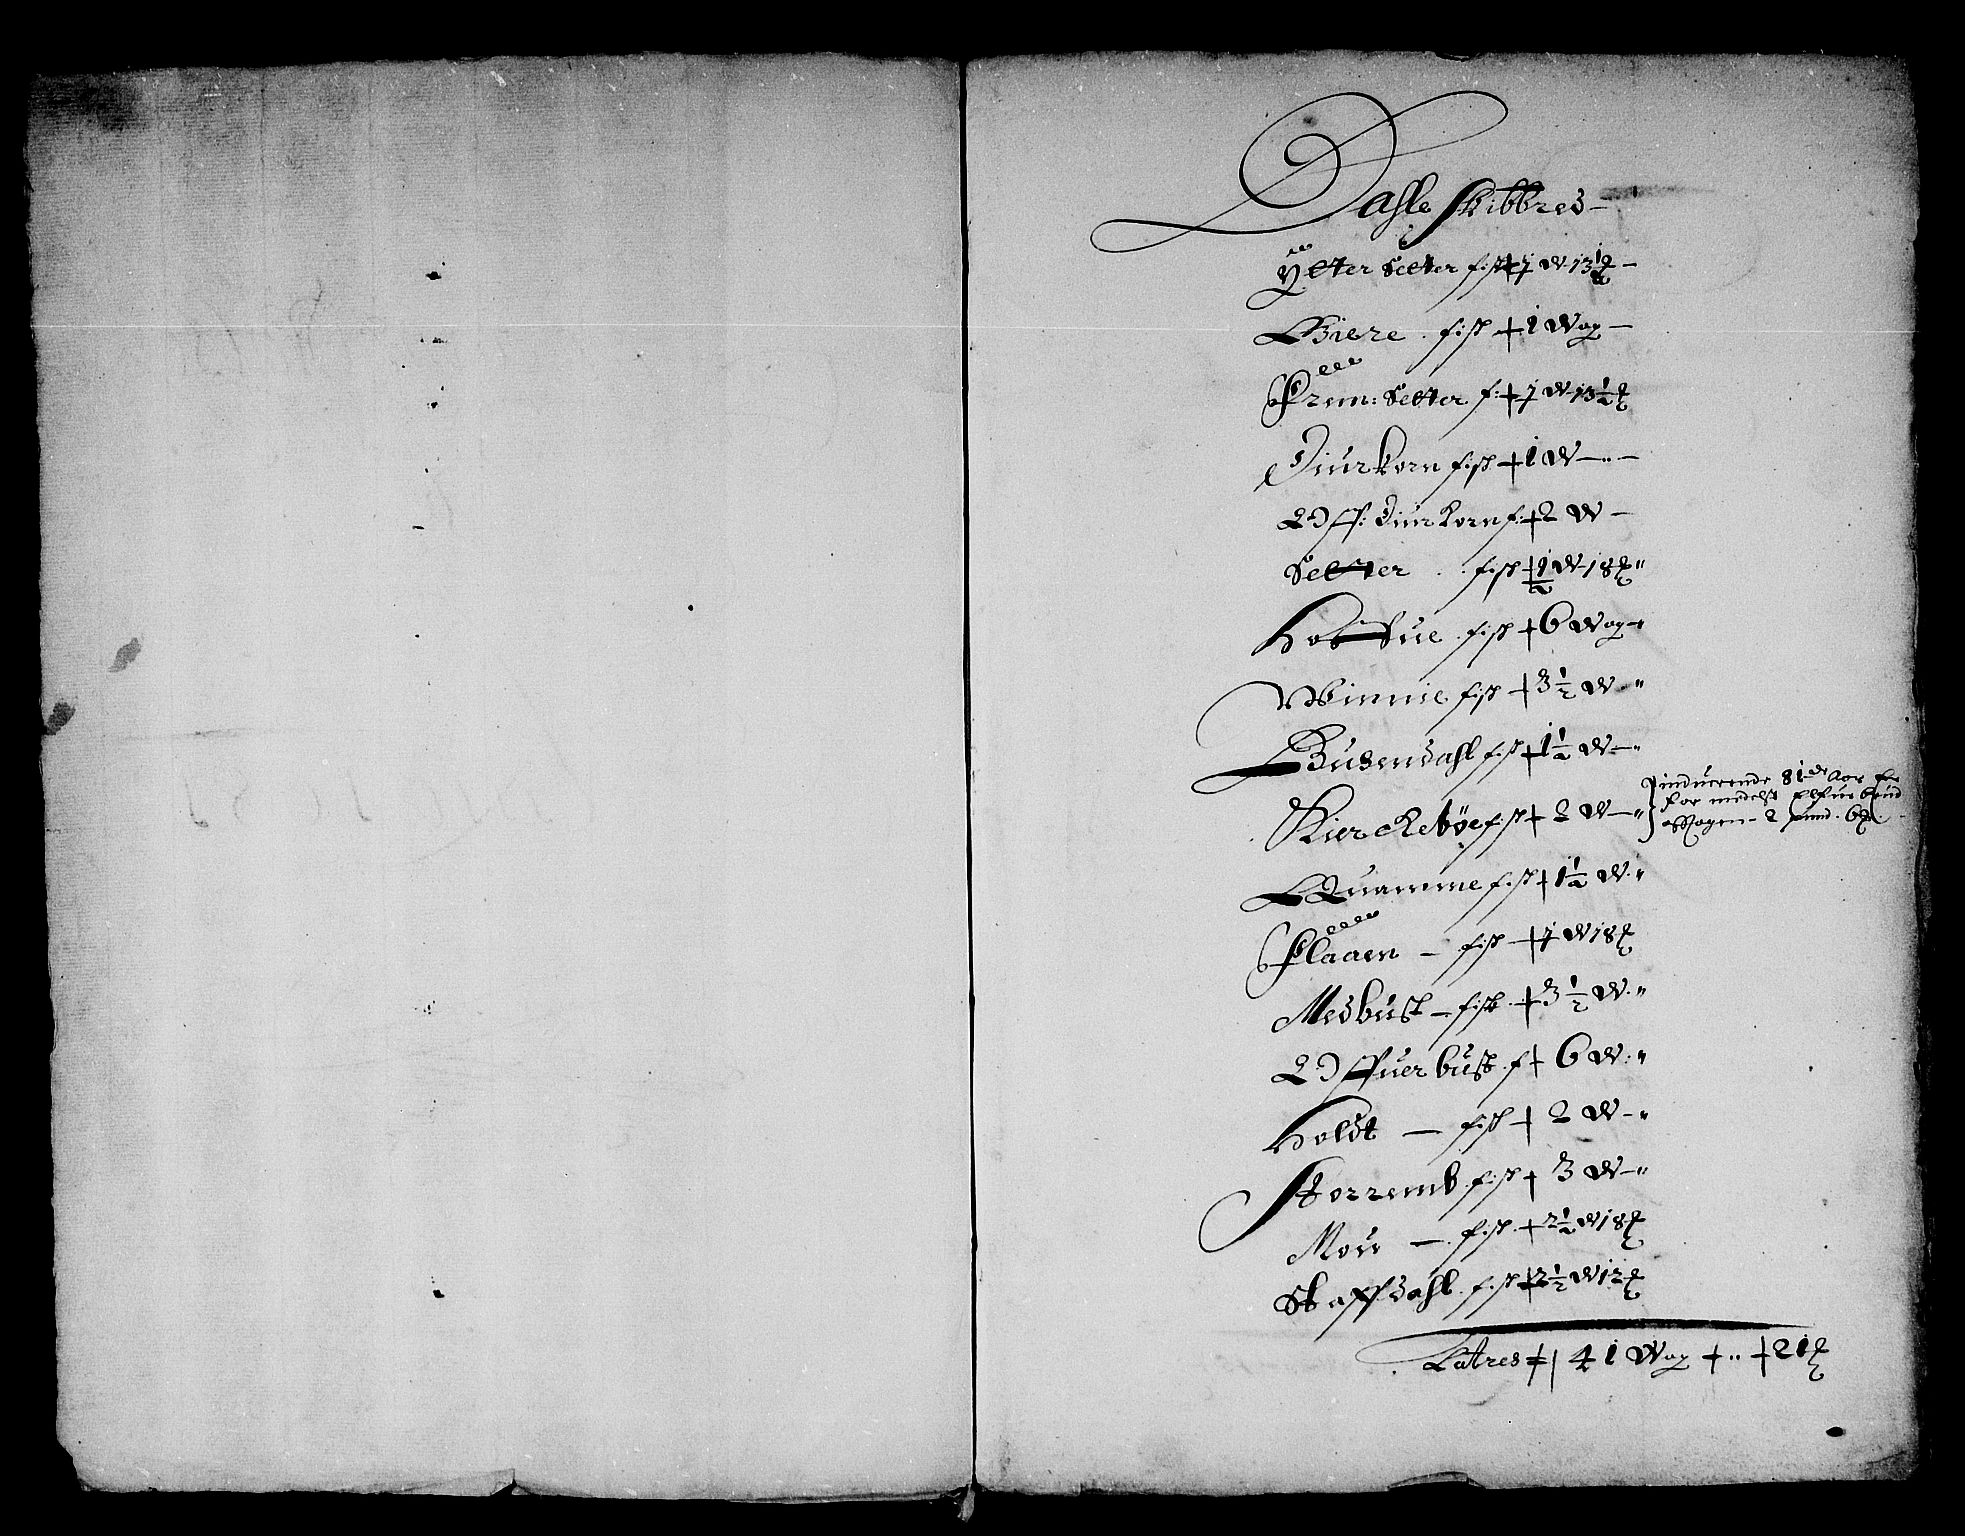 Dahle Skibbred —
Ytter Setter fisk + 1 W 13½ ℔ —
Giere . fisk + 1 Wog —
Frem: Setter f: + 1 W 13½ ℔
Diurkorn fisk + 1 W — " —
Off: Diurkorn f: + 2 W —
Setter . . fisk + ½ W 18 ℔ "
Hosue . fisk + 6 Wog — "
Winnie fisk + 3½ W "
Busendahl fisk + 1½ W — "
Kirckebøe fisk + 2 W — "
inducerende 81de Aar er
for medelst Elfue brud
Wogen - 2 pund . 6 ℔ .
Quamme fisk + 1½ W . "
Flaaen — fisk + 1 W 18 ℔
Medbust — fisk + 3½ W . "
Offuerbust . f + 6 W . "
Holdt — fisk + 2 W — "
Storremb . fisk + 3 W — "
Mou — . fisk . + 2½ W 18 ℔
Skaffdahl . fisk + 2½ W 12 ℔
Latres + | 41 Wog + " + 21 ℔